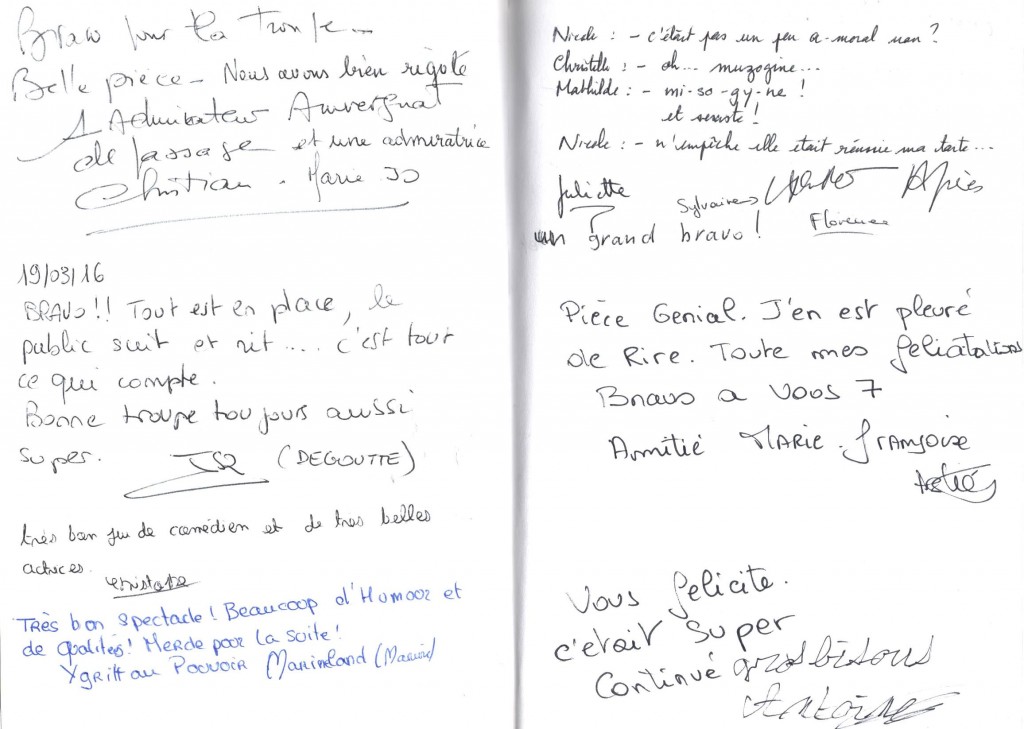 Bravo pour la troupe...
Belle pièce - Nous avons bien rigolé
1 Admirateur Auvergnat
de passage et une admiratrice
Christian - Marie Jo
19/03/16
BRAVO!! Tout est en place, le
public suit et rit.... c'est tout
ce qui compte.
Bonne troupe toujours aussi
super. (DEGOUTTE)
très bon jeu de comédien et de tres belles
actrices.
Christophe
Très bon spectacle! Beaucoup d'Humour et
de qualités! Merde pour la suite!
Ygritt au Pouvoir Marineland (Marine)
Nicole : - c'était pas un peu a-moral non ?
Christelle : - oh... muzogine...
Mathilde : - mi-so-gy-ne !
et sexiste !
Nicole : - n'empêche elle était réussie ma tarte...
Juliette Sylvaine
Florence
un grand bravo !
Pièce Genial. J'en est pleuré
de Rire. Toute mes felicitations
Bravo a vous 7
Amitié MARIE-FRANÇOISE
Vous felicite.
c'etait super
Continué gros bisous
Antoine